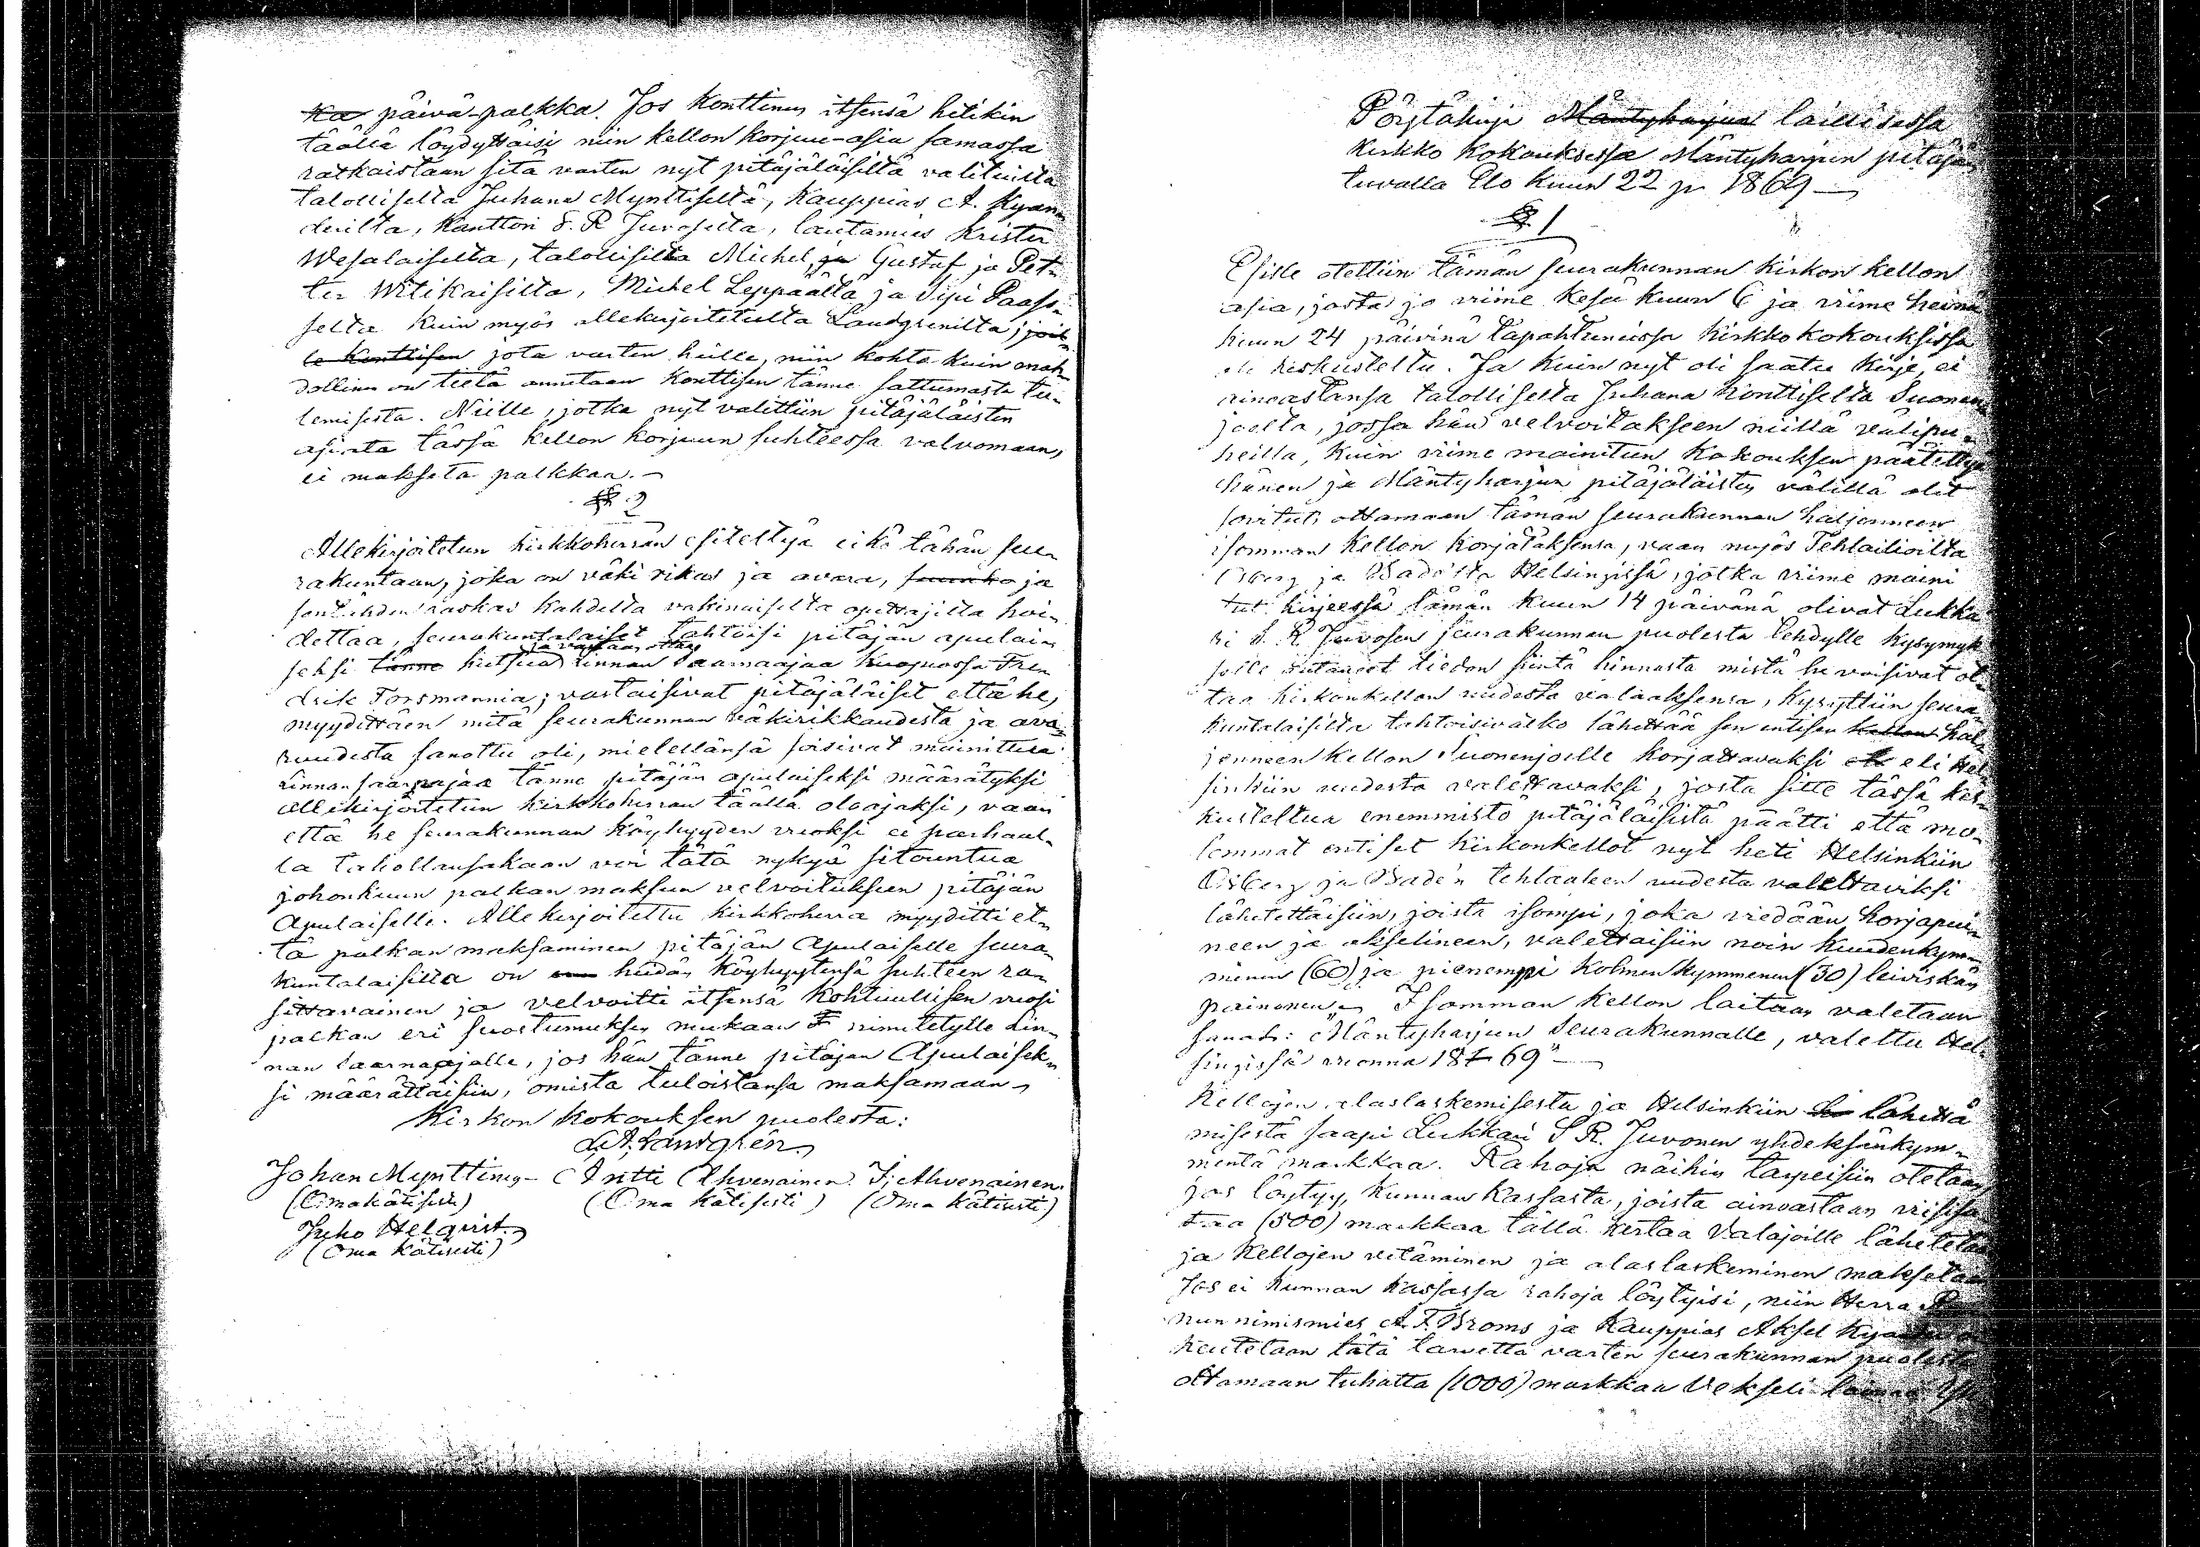 päivä-palkka. Jos Konttinen itsensä hetikin
täällä löydyttäisi niin kellon korjuu-asia samassa
ratkaistaan sitä varten nyt pitäjäläisiltä valituilta
talolliselta Juhana Mynttiseltä, Kauppias A. Kyan-
derilta, Kanttori S. R. Juvoselta, lautamies Krister
Wesalaiselta, talolliselta Michel, Gustaf ja Pet-
ter Witikaisilta, Michel Leppäältä ja Sipi Paaso-
selta kuin myös allekirjoitetulta Landgrenilta, joit
le Konttisen jota varten heille, niin kohta kuin mah-
dollinen on tietä annetaan Konttisen tänne sattumasta tu-
lemisesta. Niille, jotka nyt valittiin pitäjäläisten
asiata tässä kellon korjuun suhteessa valvomaan,
ei makseta palkkaa.
§ 2
Allekirjoitetun kirkkoherran esiteltyä eikö tähän seu-
rakuntaan, joka on väki rikas ja avara, ja
sentähden raskas kahdelta vakinaiselta opettajilta hoi-
dettaa, seurakuntalaiset tahtoisi pitäjän apulai-
seksi tänne kutsua linnan saarnaajaa Kuopiossa Fre-
drik Forsmannia; vastaisivat pitäjäläiset että he,
myydittäen mitä seurakunnan väkirikkaudesta ja ava-
ruudesta sanottu oli, mielellänsä soisivat mainittua
linnan saarnajaa tänne pitäjän apulaiseksi määrätyksi
allekirjoitetun kirkkoherran täällä oloajaksi, vaan
että he seurakunnan köyhyyden vuoksi ei parhaal-
la tahollansakaan voi tätä nykyä sitountua
johonkuun palkan maksun velvoitukseen pitäjän
Apulaiselle. Allekirjoitettu kirkkoherra myyditti et-
tä palkan maksaminen pitäjän Apulaiselle seura-
kuntalaisilta on heidän köyhyytensä suhteen ra-
sittavainen ja velvoitti itsensä kohtuullisen vuosi
palkan eri suostumuksen mukaan nimitetylle Lin-
nan saarnaajalle, jos hän tänne pitäjän Apulaisek-
si määrättäisiin, omista tuloistansa maksamaan,
Kirkon kokouksen puolesta:
L. A. Landgrén
Johan Mynttinen Antti Ahvenainen I: Ahvenainen
(Omakätisesti) (Oma kätisesti) (Oma kätisesti)
Juho Helqvist
(Oma kätisesti)
Pöytäkirja Mäntyharjun laillisessa
kirkko kokouksessa Mäntyharjun pitäjän
tuvalla Elo kuun 22 p. 1869
§ 1
Esille otettiin tämän seurakunnan kirkon kellon
asia, josta jo viime kesä kuun 6 ja viime heinä
kuun 24 päivinä tapahtuneissa kirkko kokouksissa
oli keskusteltu. Ja kuin nyt oli saatu kirje, ei
ainoastansa talolliselta Juhana Konttiselta Suonen-
joelta, jossa hän velvoitakseen niillä välipu-
heilla, kuin viime mainitun kokouksen päätettyä
hänen ja Mäntyharjun pitäjäläisten välillä olit
sovitut, ottamaan tämän seurakunnan haljenneen
isomman kellon korjataksensa, vaan myös Tehtailioilta
Osberg ja Bade'lta Helsingissä, jotka viime maini
tut kirjeessä tämän kuun 14 päivänä olivat Lukka-
ri S. R. Juvosen seurakunnan puolesta tehdylle kysymyk
selle antaneet tiedon siitä hinnasta mistä he voisivat ot-
taa kirkonkellon uudesta valaaksensa, kysyttiin seura-
kuntalaisilta tahtoisivatko lähettää sen entisen hal-
jenneen kellon Suonenjoelle korjattavaksi eli Hel-
sinkiin uudesta valettavaksi, josta sitte tässä kes-
kusteltua enemmistö pitäjäläisistä päätti että mo-
lemmat entiset kirkonkellot nyt heti Helsinkiin
Osberg ja Bade'n tehtaaseen uudesta valettaviksi
lähetettäisiin, joista isompi, joka viedään korjapui-
neen ja akselineen, valettaisiin noin kuudenkym-
menen (60) ja pienempi kolmenkymmenen (30) leiviskän
painoinen. Isomman kellon laitaan valetaan
sanat: "Mäntyharjun Seurakunnalle, valettu Hel-
singissä vuonna 1869"
Kellojen alaslaskemisesta ja Helsinkiin lähettä
misestä saapi Lukkari S R. Juvonen yhdeksänkym-
mentä markkaa. Rahoja näihin tarpeisiin otetaan
jos löytyy, kunnan kassasta, joista ainoastaan viisisa-
taa (500) markkaa tällä kertaa valajoille lähetetään
ja kellojen vetäminen ja alaslaskeminen maksetaan
Jos ei kunnan kassassa rahoja löytyisi, niin Herra
nun nimismies A. F. Broms ja Kauppias Aksel
keutetaan tätä tarvetta varten seurakunnan puolesta
ottamaan tuhatta (1000) markkaa Vekseli